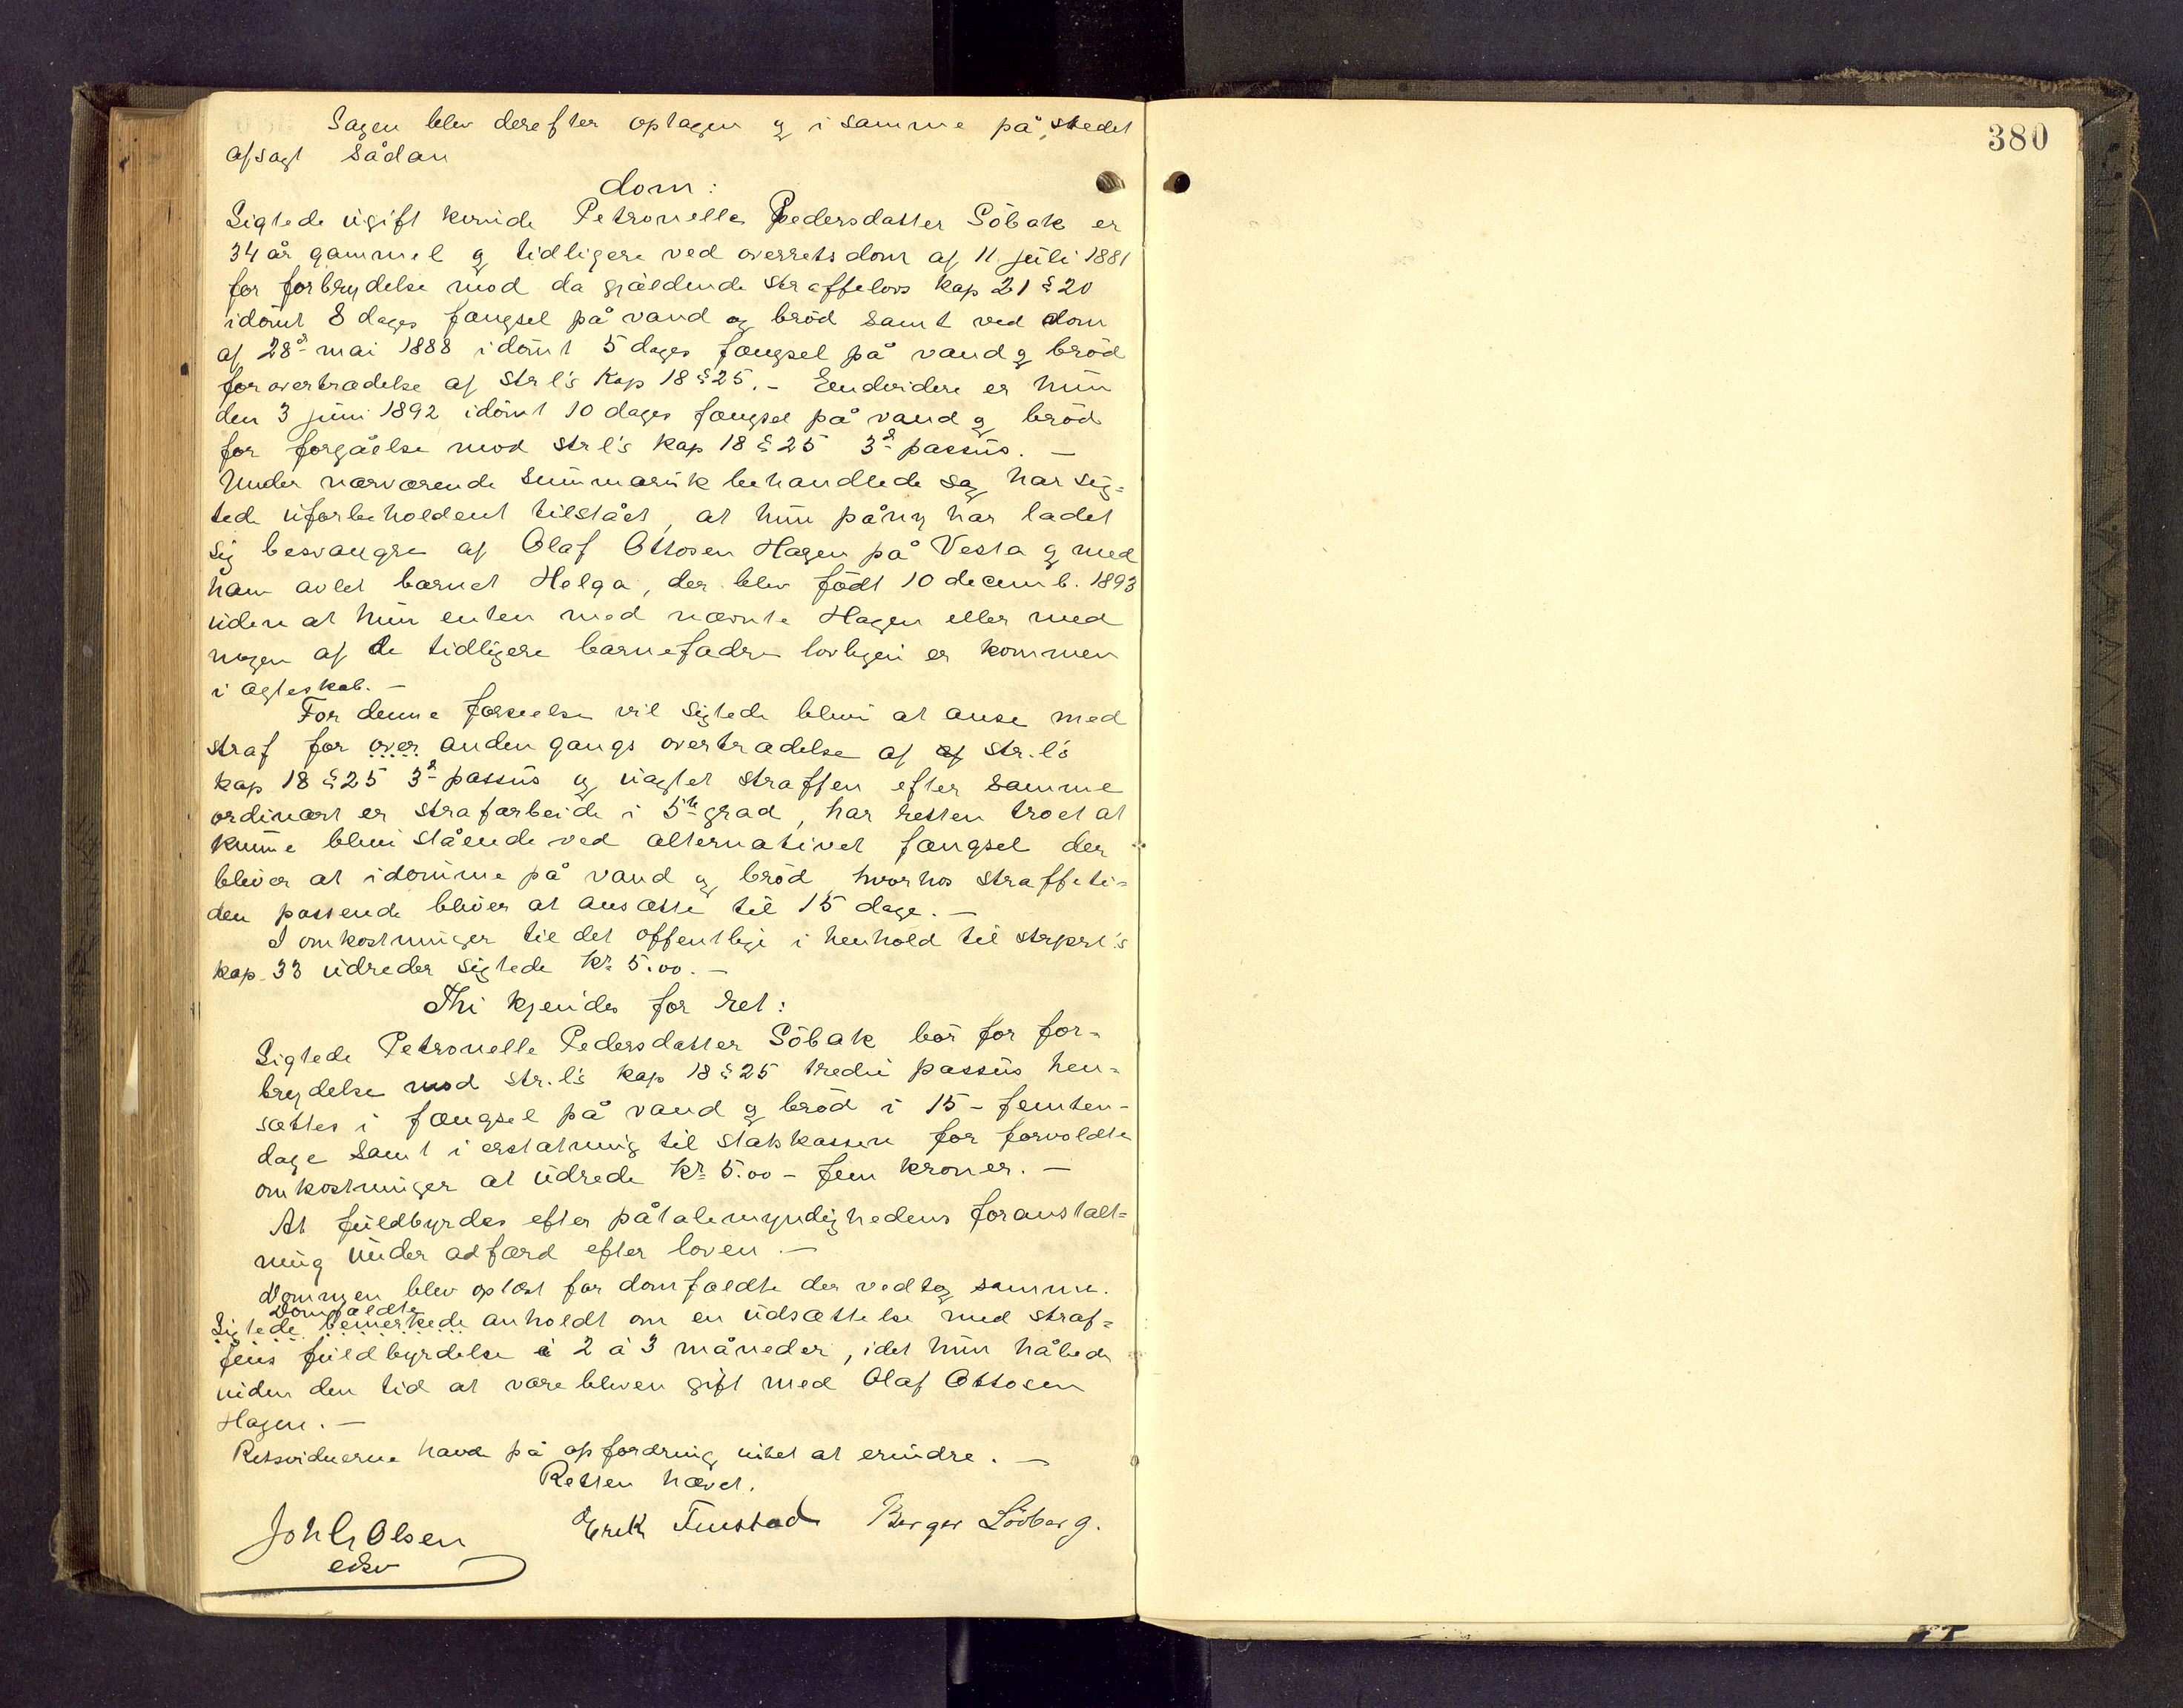 Sagen blev derefter optagen og i samme på stedet
afsagt sådan
dom:
Sigtede ugift kvinde Petronelle Pedersdatter Söbak er
34 år gammel og tidligere ved overretsdom af 11 juli 1881
for forbrydelse mod da gjældende straffelovs kap 21 § 20
idömt 8 dages fængsel på vand og bröd samt ved dom
af 28de mai 1888 idömt 5 dages fængsel på vand og bröd
for overtrædelse af strl's kap 18 § 25. - Endvidere er hun
den 3 juni 1892 idömt 10 dages fængsel på vand og bröd
for forgåelse mod strl's kap 18 § 25 3de passus. -
Under nærværende summarisk behandlede sag har sig=
tede uforbeholdent tilstået, at hun påny har ladet
sig besvangre af Olaf Ottosen Hagen på Vesta og med
ham avlet barnet Helga, der blev födt 10 decemb. 1893
uden at hun enten med nævnte Hagen eller med
nogen af de tidligere barnefædre lovligen er kommen
i ægteskab. -
For denne forseelse vil sigtede blive at anse med
straf for over anden gangs overtrædelse af af str.l's
kap 18 § 25 3de passus og uagtet straffen efter samme
ordinært er strafarbeide i 5te grad, har retten troet at
kunne blive stående ved alternativet fængsel der
bliver at idömme på vand og bröd, hvorhos straffeti=
den passende bliver at ansætte til 15 dage. -
I omkostninger til det offentlige i henhold til strprl's
kap. 33 udreder sigtede kr 5.00. -
Thi kjendes for ret:
Sigtede Petronelle Pedersdatter Söbak bör for for=
brydelse mod str.l's kap 18 § 25 tredie passus hen=
sættes i fængsel på vand og bröd i 15 - femten -
dage samt i erstatning til statskassen for forvoldte
omkostninger at udrede kr 5.00 - fem kroner. -
At fuldbyrdes efter påtalemyndighedens foranstalt=
ning under adfærd efter loven. -
Dommen blev oplæst for domfældte der vedtog samme.
Domfældte
Sigtede bemerkede anholdt om en udsættelse med straf=
fens fuldbyrdelse i 2 à 3 måneder, idet hun håbede
inden den tid at være bleven gift med Olaf Ottosen
Hagen. -
Retsvidnerne havde på opfordring intet at erindre. -
Retten hævet.
Joh G Olsen Erik Finstad Berger Lövberg.
edsv
380